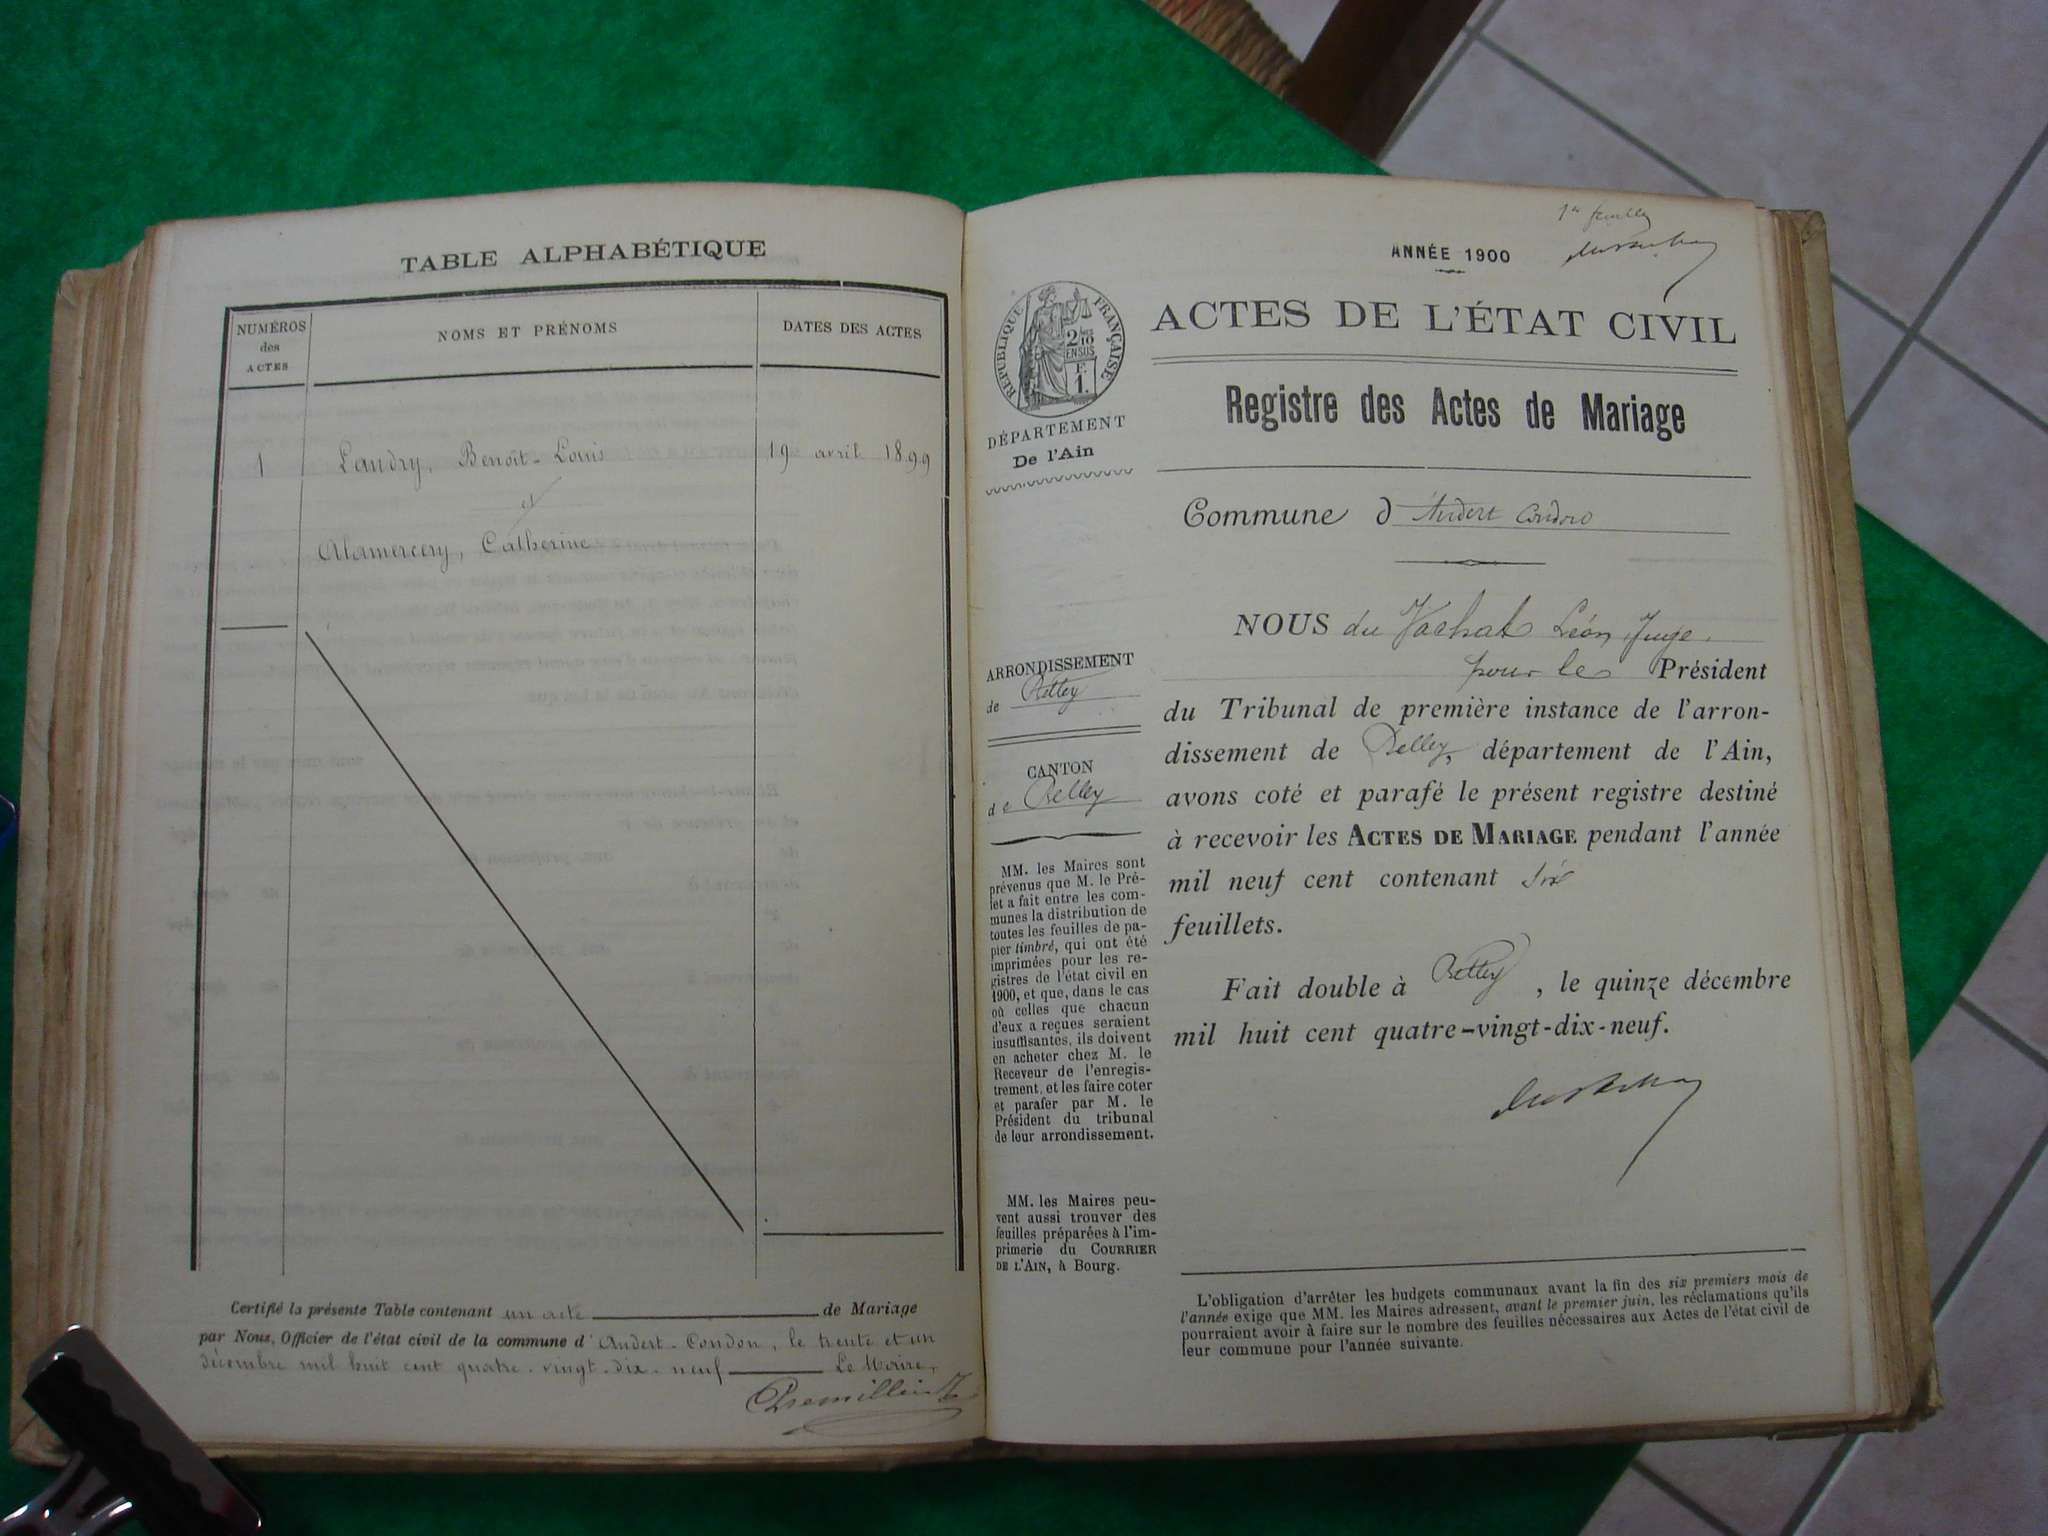 TABLE ALPHABÉTIQUE
NUMÉROS
des
ACTES
NOMS ET PRÉNOMS
DATES DES ACTES
1 Landry, Benoît-Louis 19 avril 1899
et
Alamercery, Catherine
Certifié la présente Table contenant un acte de Mariage
par Nous, Officier de l'état civil de la commune d'Andert-Condon, le trente et un
décembre mil huit cent quatre-vingt-dix-neuf Le Maire,
1er feuillet
ANNÉE 1900
RÉPUBLIQUE FRANÇAISE
2/10
EN SUS
F.
1.
DÉPARTEMENT
De l'Ain
ACTES DE L'ÉTAT CIVIL
Registre des Actes de Mariage
Commune d'Andert Condon
ARRONDISSEMENT
de Belley
CANTON
de Belley
MM. les Maires sont
prévenus que M. le Pré-
fet a fait entre les com-
munes la distribution de
toutes les feuilles de pa-
pier timbré, qui ont été
imprimées pour les re-
gistres de l'état civil en
1900, et que, dans le cas
où celles que chacun
d'eux a reçues seraient
insuffisantes, ils doivent
en acheter chez M. le
Receveur de l'enregis-
trement, et les faire coter
et parafer par M. le
Président du tribunal
de leur arrondissement.
MM. les Maires peu-
vent aussi trouver des
feuilles préparées à l'im-
primerie du COURRIER
DE L'AIN, à Bourg.
NOUS du Vachat Léon, Juge,
pour le Président
du Tribunal de première instance de l'arron-
dissement de Belley, département de l'Ain,
avons coté et parafé le présent registre destiné
à recevoir les ACTES DE MARIAGE pendant l'année
mil neuf cent contenant six
feuillets.
Fait double à Belley, le quinze décembre
mil huit cent quatre-vingt-dix-neuf.
L'obligation d'arrêter les budgets communaux avant la fin des six premiers mois de
l'année exige que MM. les Maires adressent, avant le premier juin, les réclamations qu'ils
pourraient avoir à faire sur le nombre des feuilles nécessaires aux Actes de l'état civil de
leur commune pour l'année suivante.